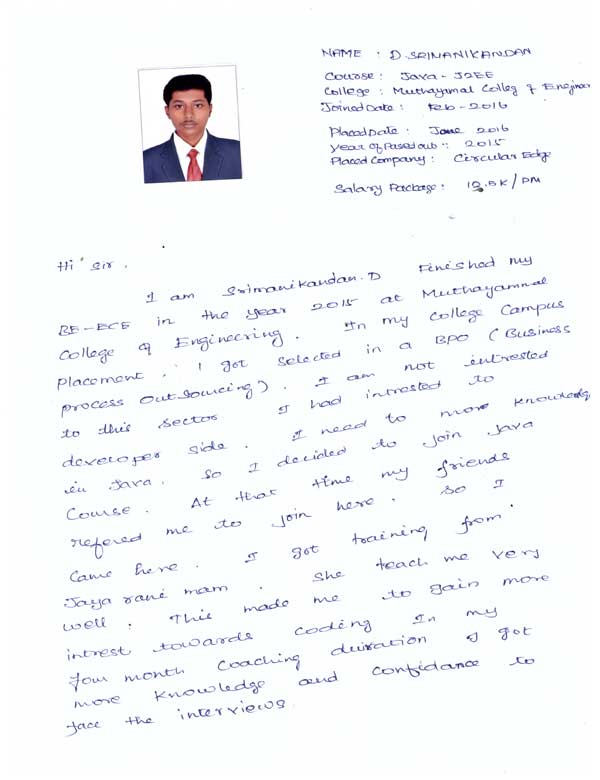 NAME : D. SRIMANIKANDAN
Course : Java - J2EE
College : Muthayamal Colleg of Enginner
Joined Date : Feb - 2016
Placed Date : June 2016
Year of Pased out : 2015
Placed Company : Circular Edge
Salary Package : 12.5K / PM
Hi sir .
I am Srimanikandan.D Finished my
BE-ECE in the year 2015 at Muthayammal
College of Engineering . In my College Campus
Placement . I got Selected in a BPO ( Business
process Outsourcing ) . I am not intrested
to this Sector . I had intrested to
developer side . I need to more knowledg
in Java . So I decided to join Java
Course . At that time my friends
refered me to join here . So I
Came here . I got training from .
Jaya rani mam . She teach me very
well . This made me to gain more
intrest towards coding In my
four month Coaching duiration I got
more knowledge and confidance to
face the interviews .